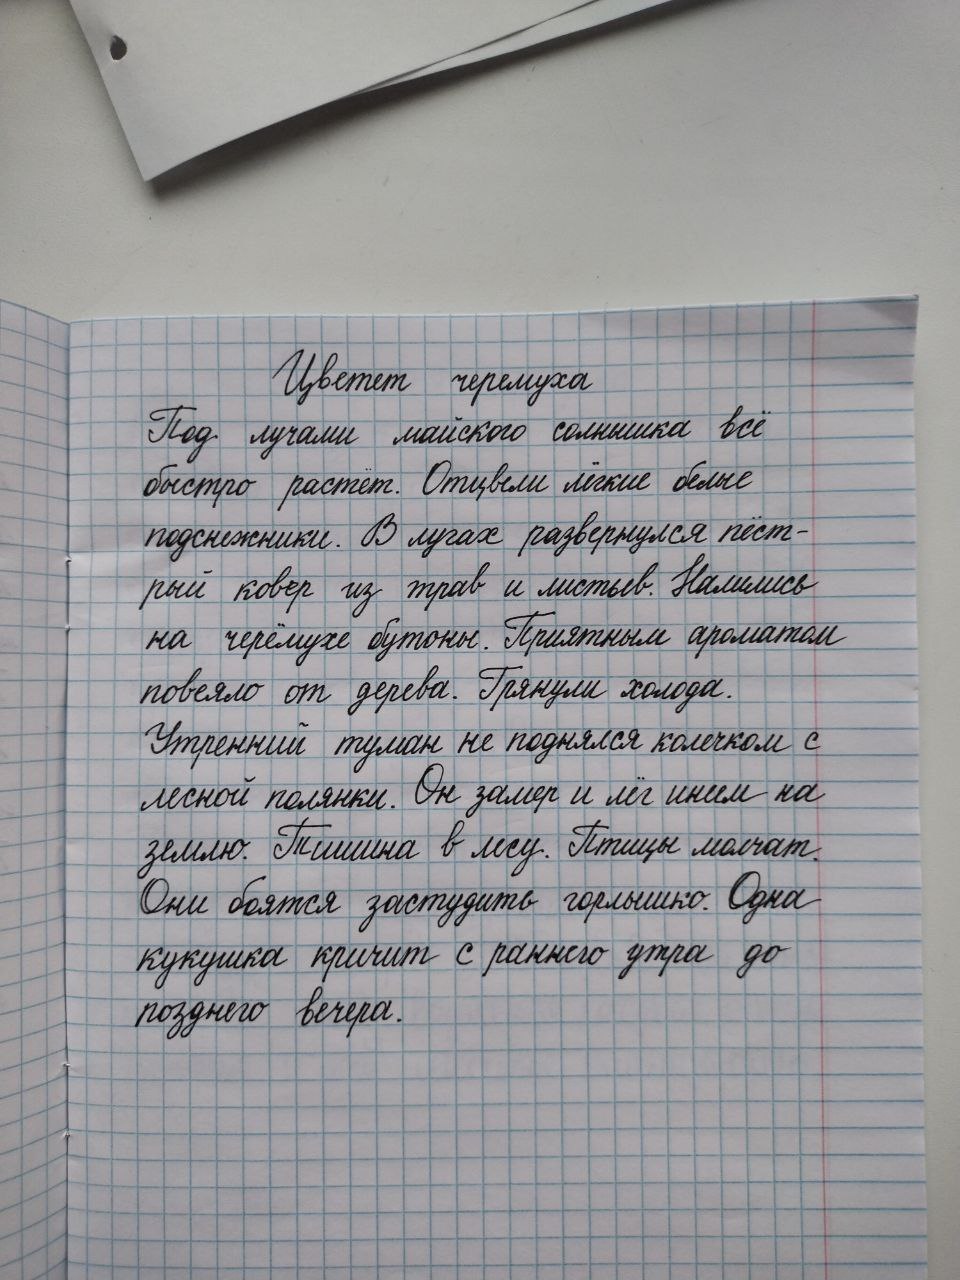 Цветет черемуха
Под лучами майского солнышка всё
быстро растёт. Отцвели лёгкие белые
подснежники. В лугах развернулся пёст-
рый ковер из трав и листьев. Налились
на черёмухе бутоны. Приятным ароматом
повеяло от дерева. Грянули холода.
Утренний туман не поднялся колечком с
лесной полянки. Он замер и лёг инеем на
землю. Тишина в лесу. Птицы молчат.
Они боятся застудить горлышко. Одна
кукушка кричит с раннего утра до
позднего вечера.